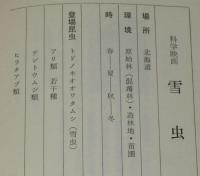 科学映画
雪虫
場所　北海道
環境　原始林（混淆林）・造林地・苗圃
時　春―夏―秋―冬
登場昆虫　トドノネオオワタムシ（雪虫）
アリ類　若干種
テントウムシ類
ヒラタアブ類